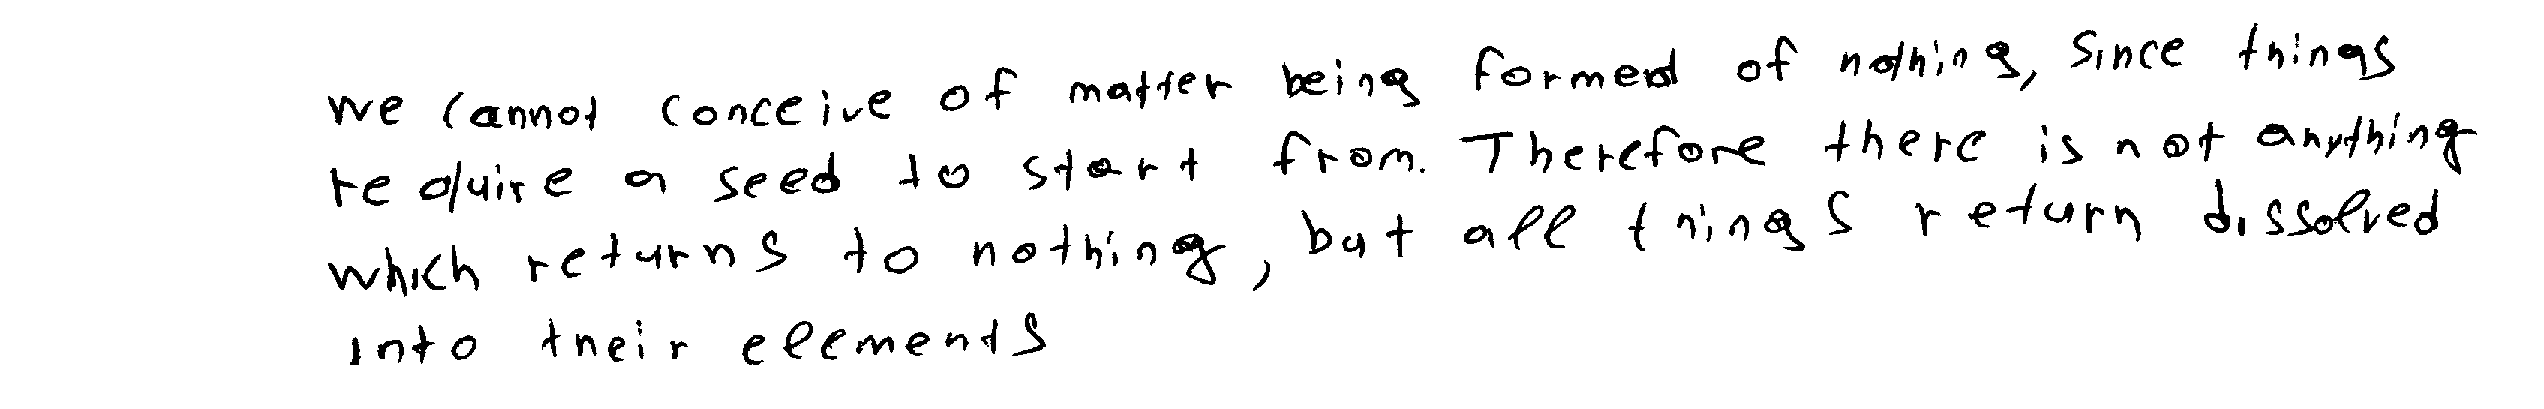 we cannot conceive of matter being formed of nothing, since things
require a seed to start from. Therefore there is not anything
which returns to nothing, but all things return dissolved
into their elements